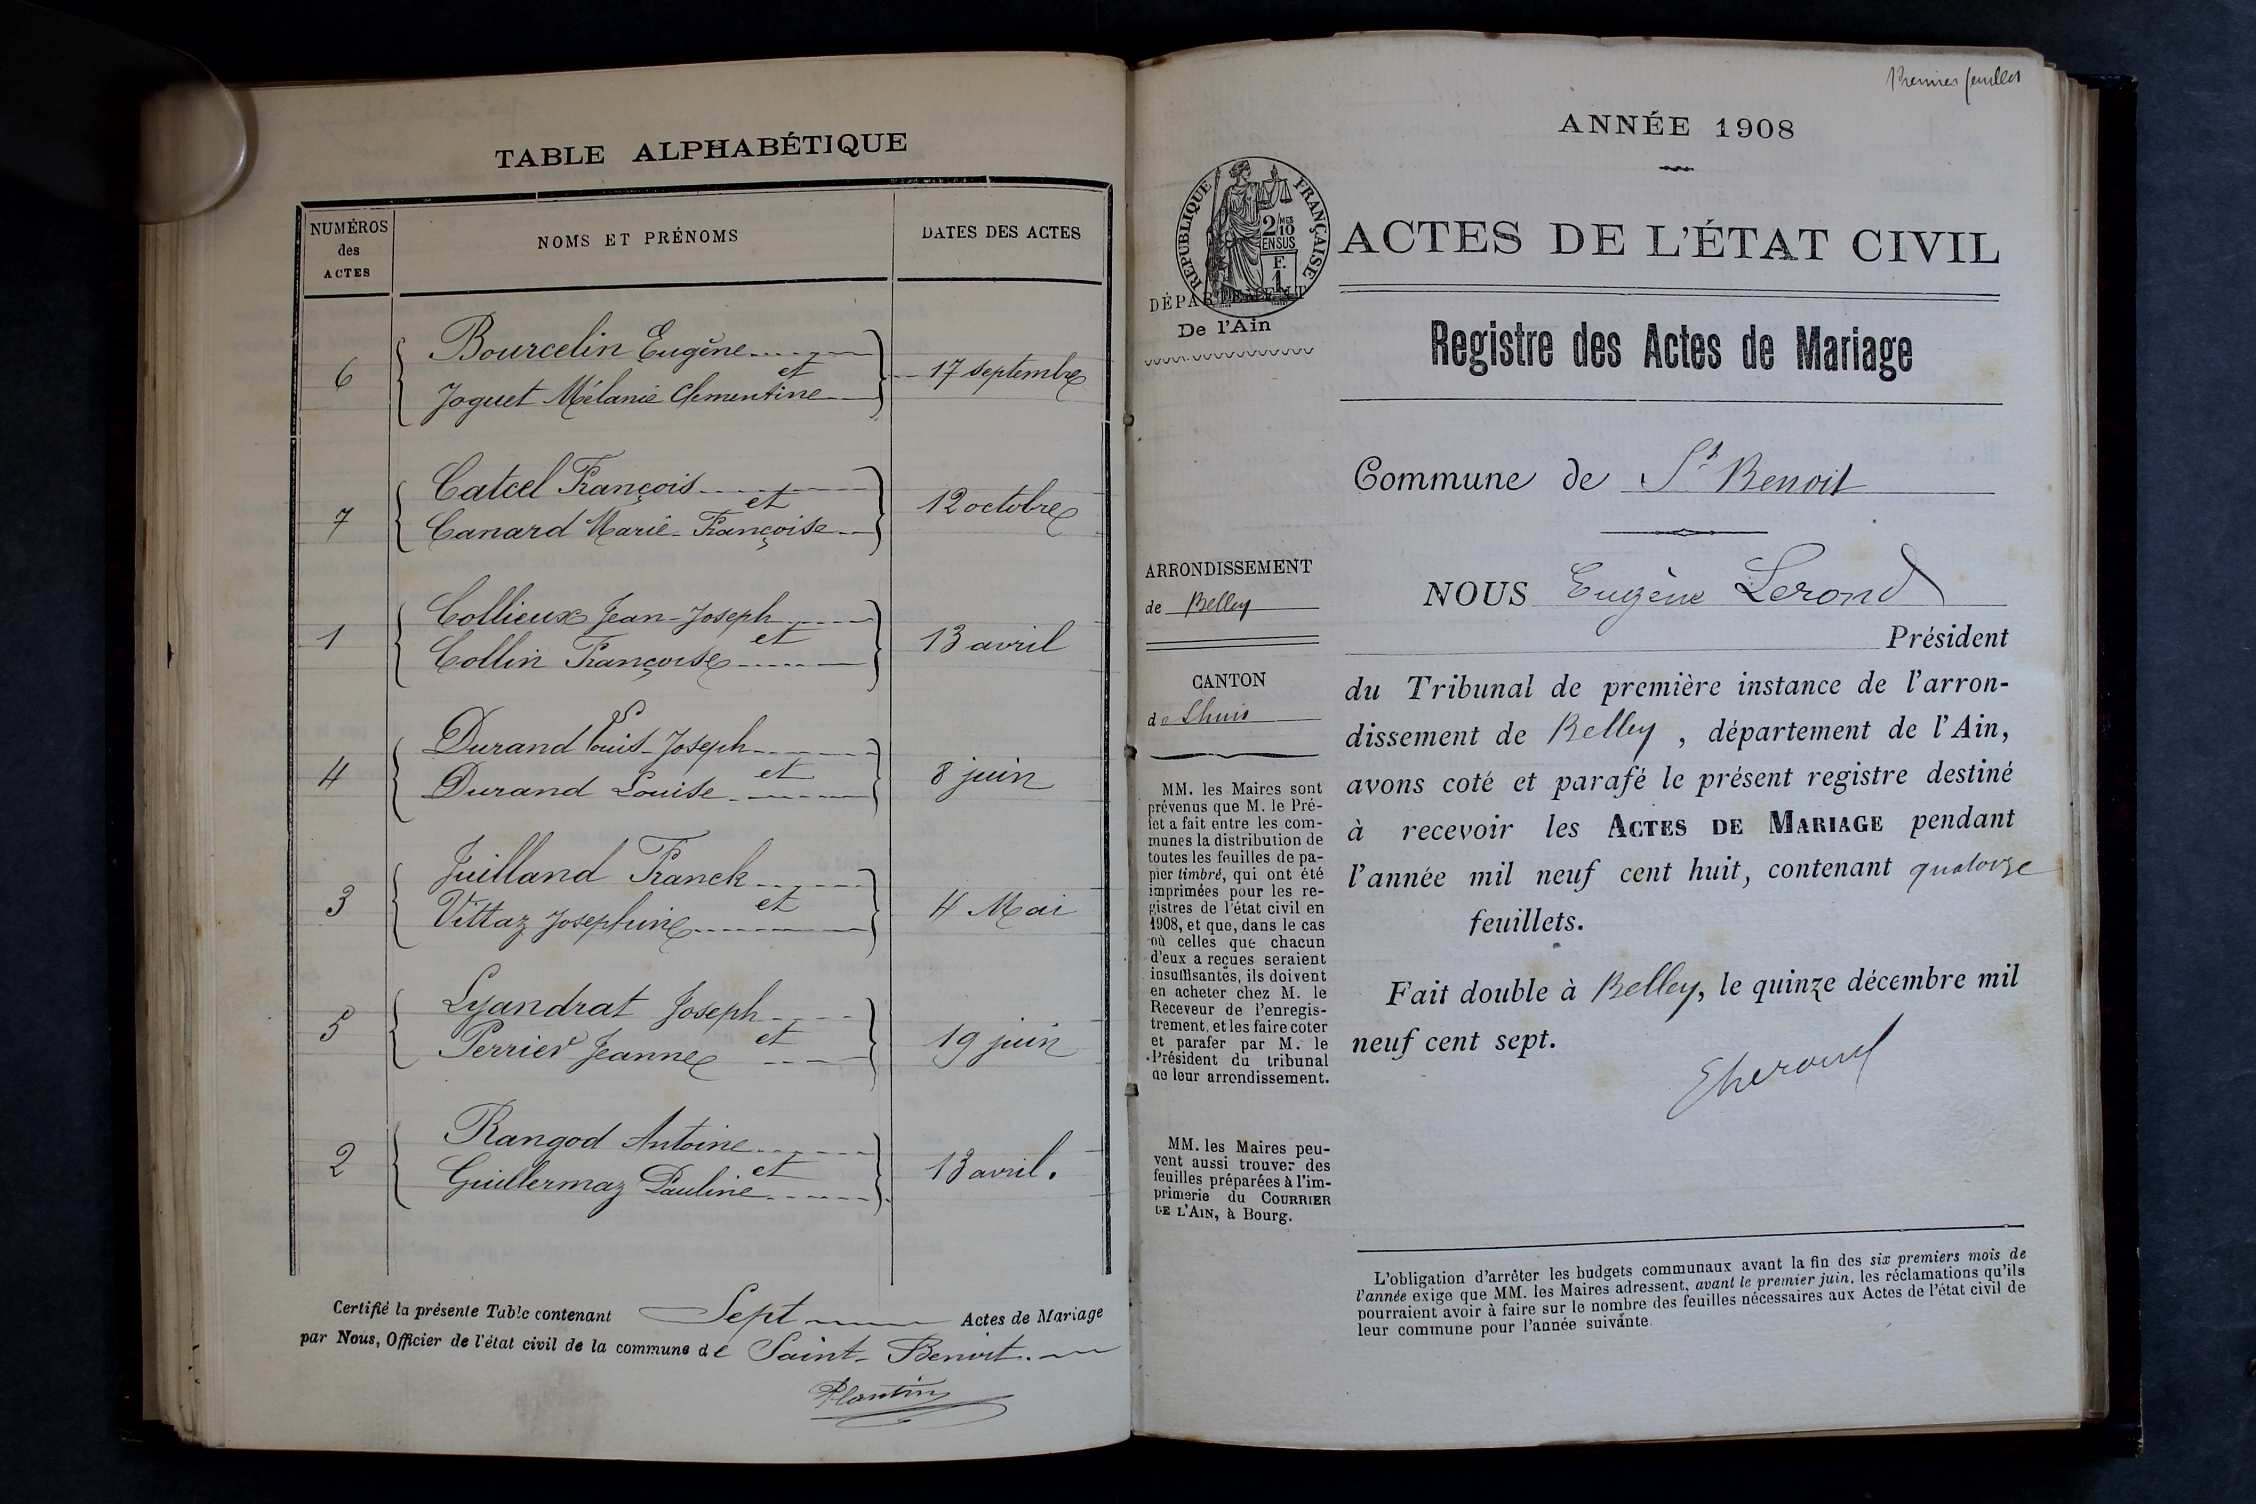 TABLE ALPHABÉTIQUE
NUMÉROS
des
ACTES
NOMS ET PRÉNOMS
DATES DES ACTES
6
Bourcelin Eugène
et
Joguet Mélanie Clementine
17 septembre
7
Catcel François
et
Canard Marie-Françoise
12 octobre
1
Collieux Jean-Joseph
et
Collin Françoise
13 avril
4
Durand Louis-Joseph
et
Durand Louise
8 juin
3
Juilland Franck
et
Vittaz Josephine
4 Mai
5
Lyandrat Joseph
et
Perrier Jeanne
19 juin
2
Rangod Antoine
et
Guillermaz Pauline
13 avril.
Certifié la présente Table contenant Sept Actes de Mariage
par Nous, Officier de l'état civil de la commune de Saint-Benoit.
Plantin
Premier feuillet
ANNÉE 1908
RÉPUBLIQUE FRANÇAISE
2/10 MES
EN SUS
F.
1
DÉPARTEMENT
De l'Ain
ACTES DE L'ÉTAT CIVIL
Registre des Actes de Mariage
Commune de St Benoit
ARRONDISSEMENT
de Belley
CANTON
de Lhuis
MM. les Maires sont
prévenus que M. le Pré-
fet a fait entre les com-
munes la distribution de
toutes les feuilles de pa-
pier timbré, qui ont été
imprimées pour les re-
gistres de l'état civil en
1908, et que, dans le cas
où celles que chacun
d'eux a reçues seraient
insuffisantes, ils doivent
en acheter chez M. le
Receveur de l'enregis-
trement, et les faire coter
et parafer par M. le
Président du tribunal
de leur arrondissement.
MM. les Maires peu-
vent aussi trouver des
feuilles préparées à l'im-
primerie du COURRIER
DE L'AIN, à Bourg.
NOUS Eugène Lerond
Président
du Tribunal de première instance de l'arron-
dissement de Belley, département de l'Ain,
avons coté et parafé le présent registre destiné
à recevoir les ACTES DE MARIAGE pendant
l'année mil neuf cent huit, contenant quatorze
feuillets.
Fait double à Belley, le quinze décembre mil
neuf cent sept.
L'obligation d'arrêter les budgets communaux avant la fin des six premiers mois de
l'année exige que MM. les Maires adressent, avant le premier juin, les réclamations qu'ils
pourraient avoir à faire sur le nombre des feuilles nécessaires aux Actes de l'état civil de
leur commune pour l'année suivante.